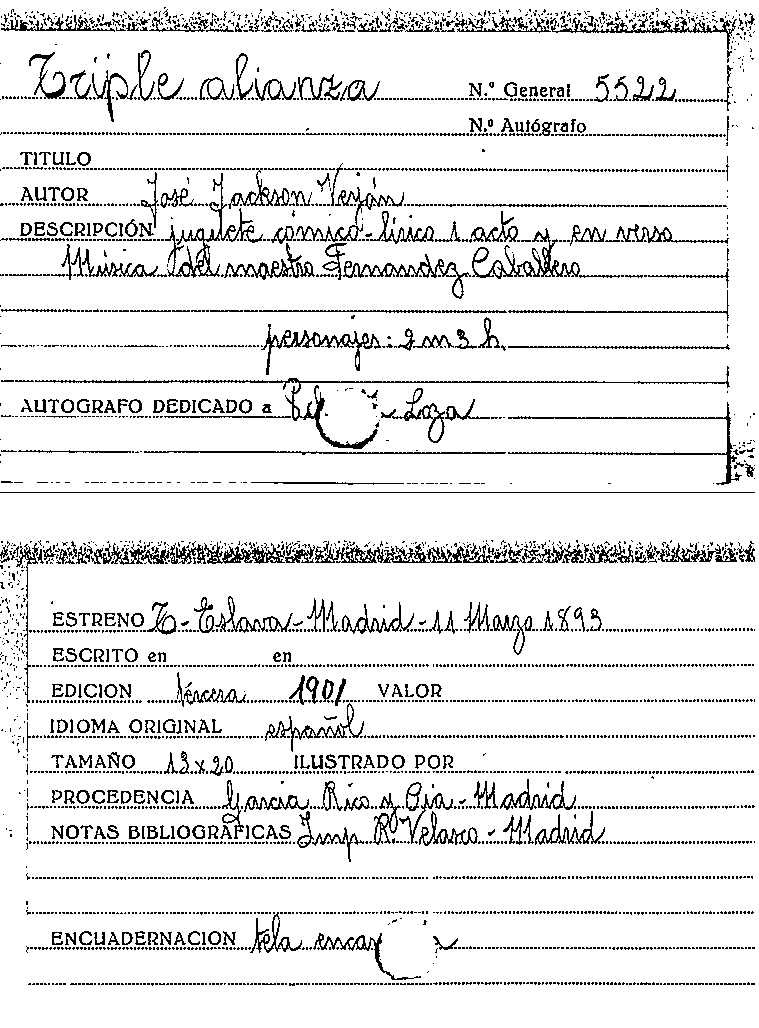 Triple alianza N.º General 5522
N.º Autógrafo
TITULO
AUTOR José Jackson Veyán
DESCRIPCIÓN juguete cómico-lírico 1 acto y en verso
Música del maestro Fernandez Caballero
personajes: 2 m 3 h.
AUTOGRAFO DEDICADO a Loza
ESTRENO T- Eslava - Madrid - 11 Marzo 1893
ESCRITO en en
EDICION tercera 1901 VALOR
IDIOMA ORIGINAL español
TAMAÑO 13 x 20 ILUSTRADO POR
PROCEDENCIA Garcia Rico y Cia - Madrid
NOTAS BIBLIOGRÁFICAS Imp R. Velasco - Madrid
ENCUADERNACION tela